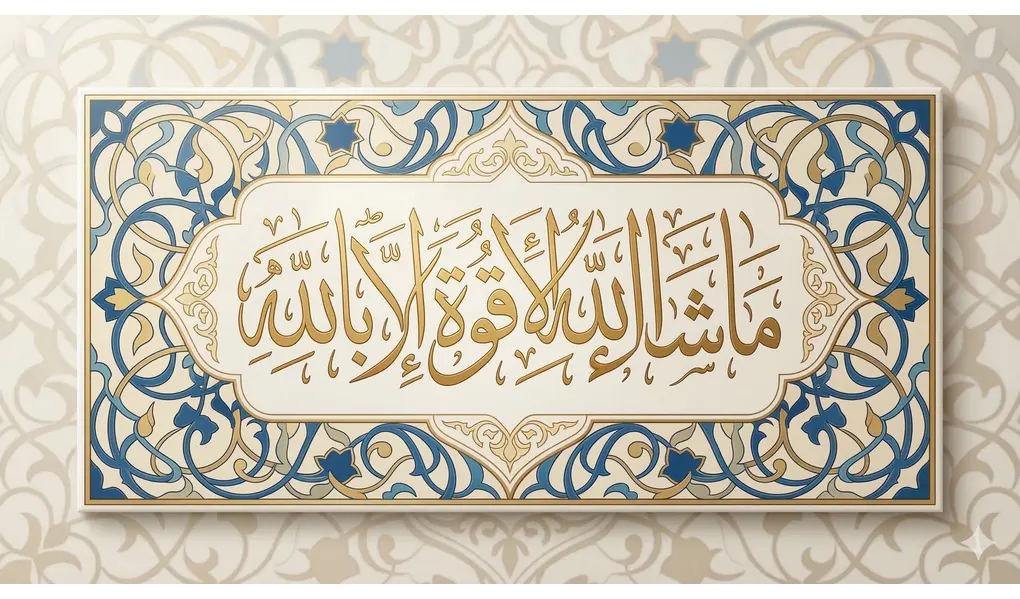 ما شا الله لا قوة إلا بالله